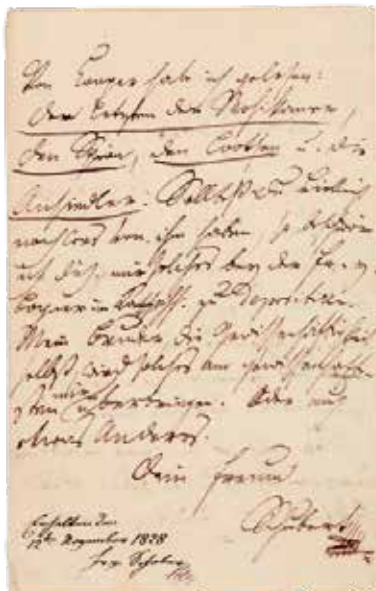 Von Cooper hab ich gelesen:
Den letzten der Mohikaner,
den Spion, den Lootsen u. die
Ansiedler. Solltest Du vielleicht
noch was von ihm haben, so beschwöre
ich dich, mir solches bey der Fr. v.
Bogner im Kaffehh. zu depositiren.
Mein Bruder die Gewissenhaftigkeit
selbst wird solches am gewissenhafte-
sten mir überbringen. Oder auch
etwas Anderes.
Dein Freund
Schubert
Erhalten den
November 1828
Schober